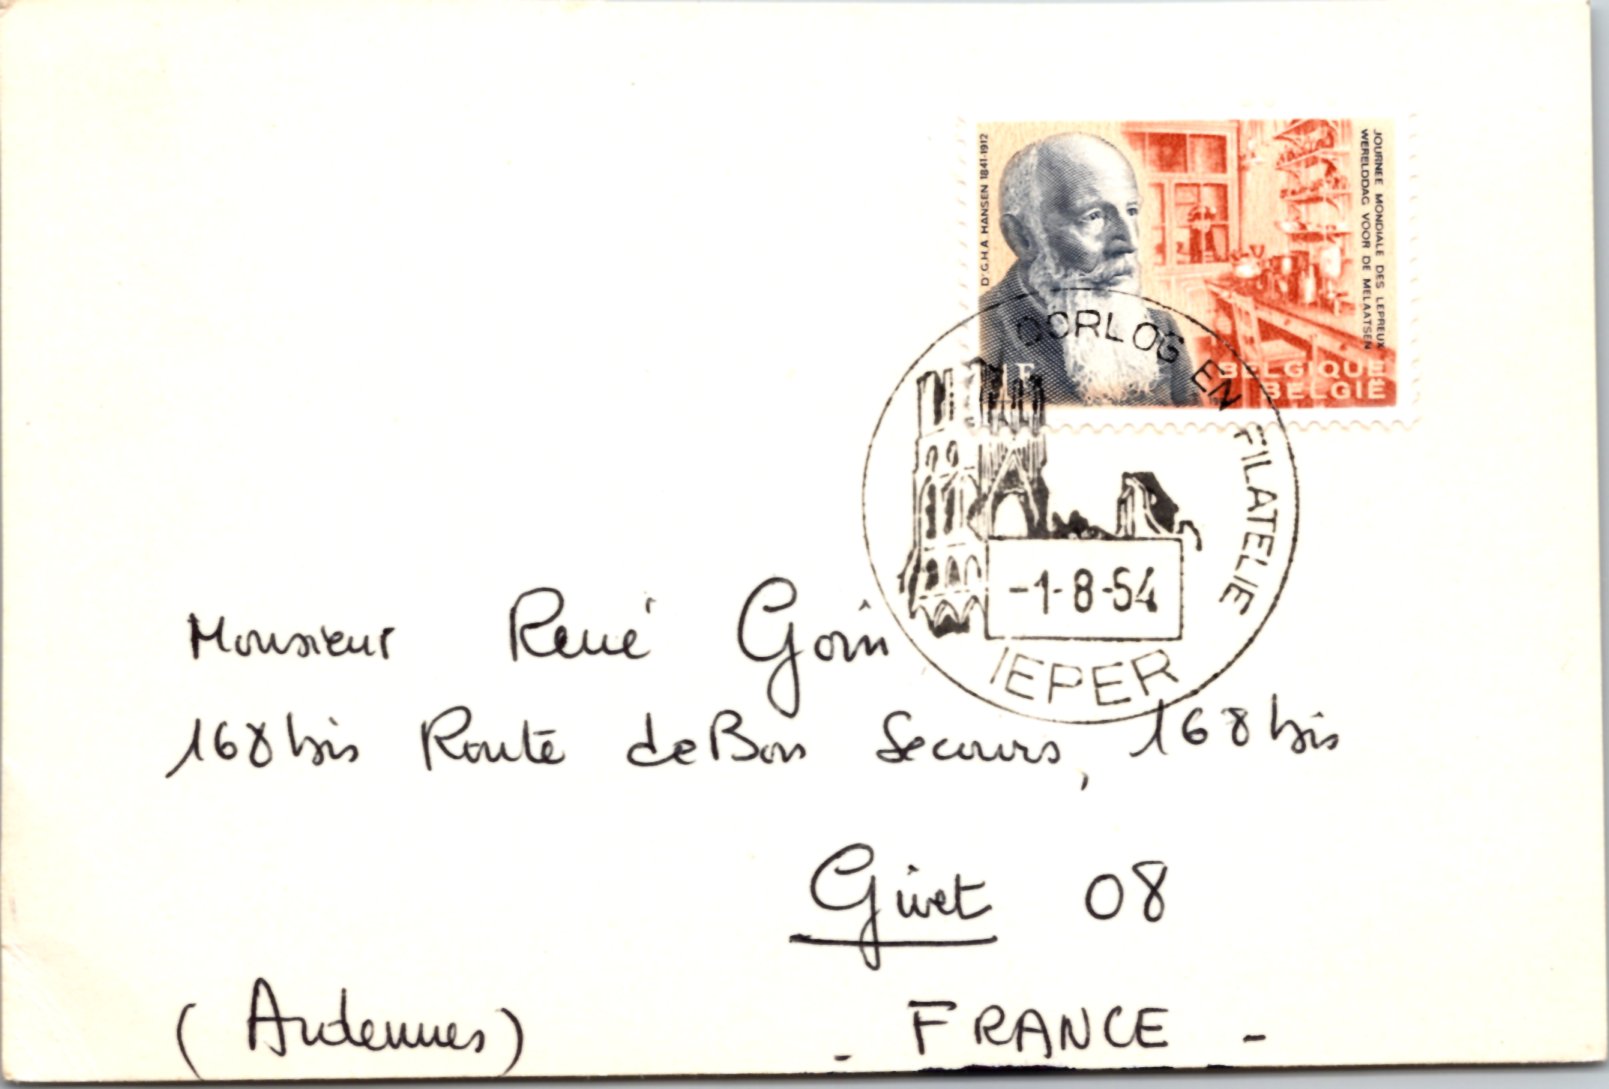 Dr G.H.A. HANSEN 1841-1912
JOURNEE MONDIALE DES LEPREUX
WERELDDAG VOOR DE MELAATSEN
F
BELGIQUE
BELGIË
OORLOG EN FILATELIE
-1-8-54
IEPER
Monsieur René Goin
168 bis Route de Bon Secours, 168 bis
Givet 08
(Ardennes) - FRANCE -